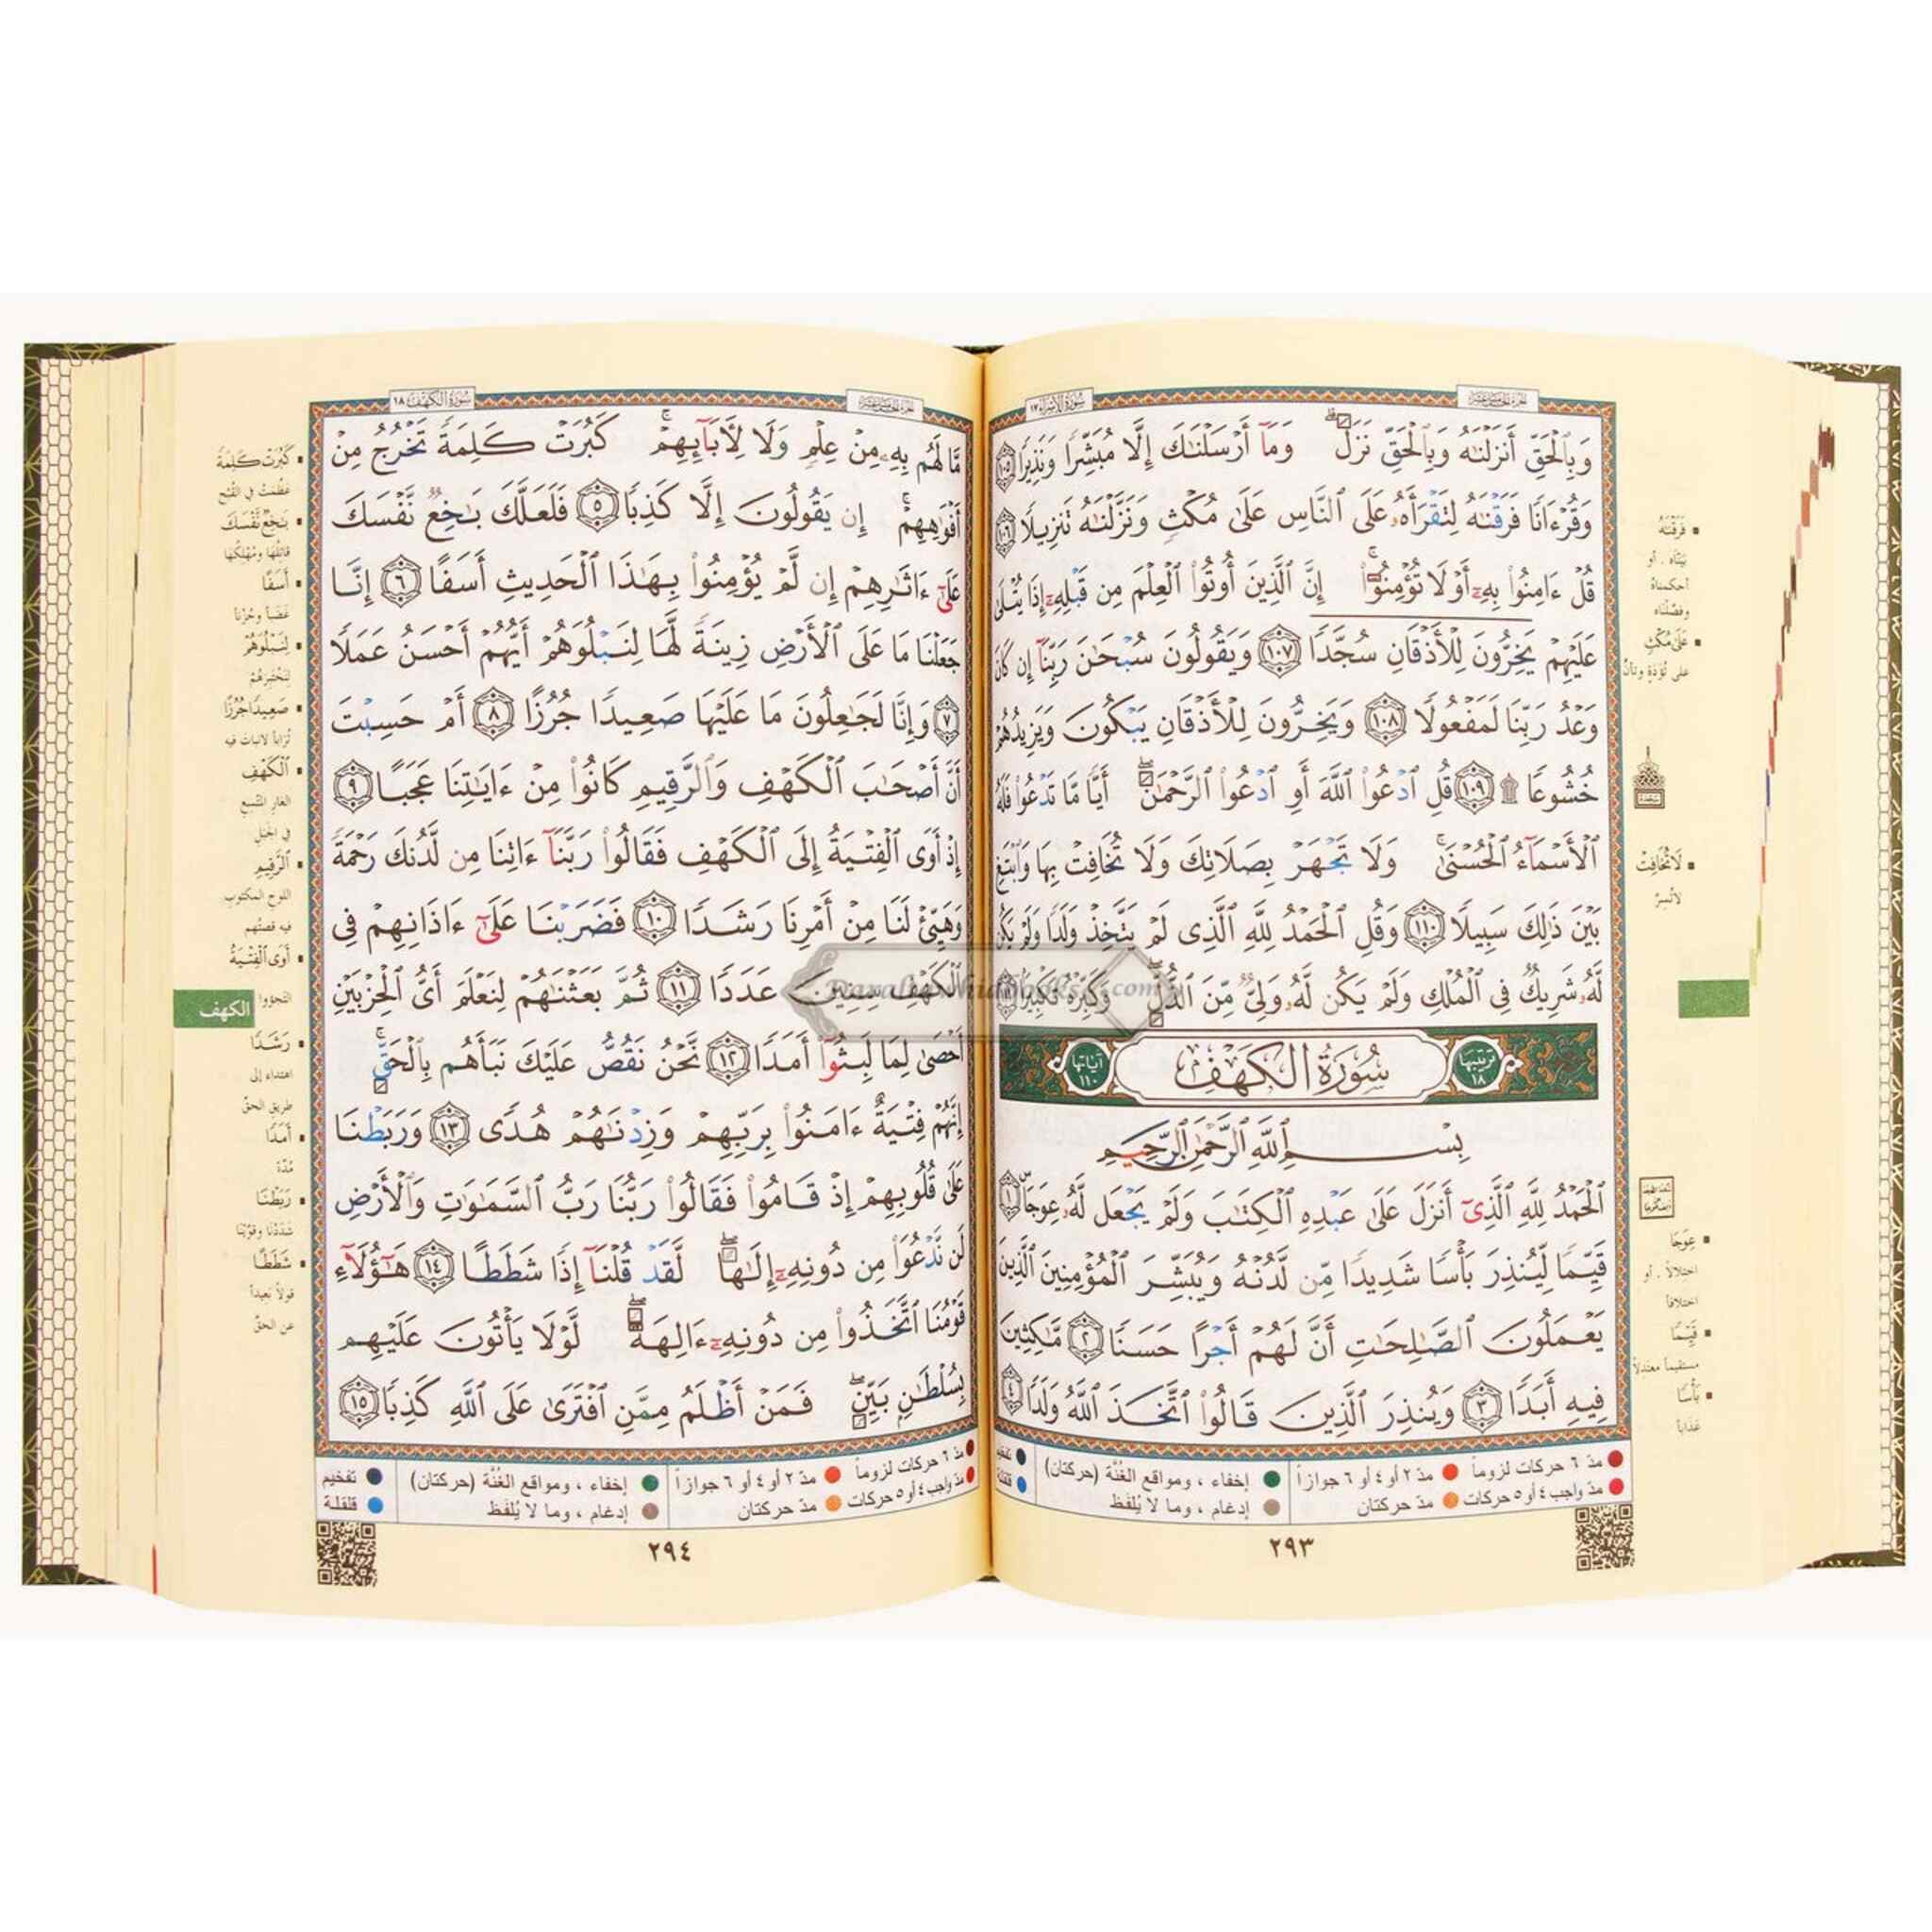 سورة الإسراء ١٧
وَبِٱلْحَقِّ أَنزَلْنَٰهُ وَبِٱلْحَقِّ نَزَلَ ۗ وَمَآ أَرْسَلْنَٰكَ إِلَّا مُبَشِّرًا وَنَذِيرًا ١٠٥
وَقُرْءَانًا فَرَقْنَٰهُ لِتَقْرَأَهُۥ عَلَى ٱلنَّاسِ عَلَىٰ مُكْثٍ وَنَزَّلْنَٰهُ تَنزِيلًا ١٠٦
قُلْ ءَامِنُوا۟ بِهِۦٓ أَوْ لَا تُؤْمِنُوٓا۟ ۚ إِنَّ ٱلَّذِينَ أُوتُوا۟ ٱلْعِلْمَ مِن قَبْلِهِۦٓ إِذَا يُتْلَىٰ
عَلَيْهِمْ يَخِرُّونَ لِلْأَذْقَانِ سُجَّدًا ١٠٧ وَيَقُولُونَ سُبْحَٰنَ رَبِّنَآ إِن كَانَ
وَعْدُ رَبِّنَا لَمَفْعُولًا ١٠٨ وَيَخِرُّونَ لِلْأَذْقَانِ يَبْكُونَ وَيَزِيدُهُمْ
خُشُوعًا ۩ ١٠٩ قُلِ ٱدْعُوا۟ ٱللَّهَ أَوِ ٱدْعُوا۟ ٱلرَّحْمَٰنَ ۖ أَيًّا مَّا تَدْعُوا۟ فَلَهُ
ٱلْأَسْمَآءُ ٱلْحُسْنَىٰ ۚ وَلَا تَجْهَرْ بِصَلَاتِكَ وَلَا تُخَافِتْ بِهَا وَٱبْتَغِ
بَيْنَ ذَٰلِكَ سَبِيلًا ١١٠ وَقُلِ ٱلْحَمْدُ لِلَّهِ ٱلَّذِى لَمْ يَتَّخِذْ وَلَدًا وَلَمْ يَكُن
لَّهُۥ شَرِيكٌ فِى ٱلْمُلْكِ وَلَمْ يَكُن لَّهُۥ وَلِىٌّ مِّنَ ٱلذُّلِّ ۖ وَكَبِّرْهُ تَكْبِيرًۢا ١١١
ترتيبها ١٨ سُورَةُ الكَهْفِ آياتها ١١٠
بِسْمِ ٱللَّهِ ٱلرَّحْمَٰنِ ٱلرَّحِيمِ
ٱلْحَمْدُ لِلَّهِ ٱلَّذِىٓ أَنزَلَ عَلَىٰ عَبْدِهِ ٱلْكِتَٰبَ وَلَمْ يَجْعَل لَّهُۥ عِوَجَا ۜ ١
قَيِّمًا لِّيُنذِرَ بَأْسًا شَدِيدًا مِّن لَّدُنْهُ وَيُبَشِّرَ ٱلْمُؤْمِنِينَ ٱلَّذِينَ
يَعْمَلُونَ ٱلصَّٰلِحَٰتِ أَنَّ لَهُمْ أَجْرًا حَسَنًا ٢ مَّٰكِثِينَ
فِيهِ أَبَدًا ٣ وَيُنذِرَ ٱلَّذِينَ قَالُوا۟ ٱتَّخَذَ ٱللَّهُ وَلَدًا ٤
فَرَقْنَٰهُ
بيّنّاه . أو
أحكمناه
وفصّلناه
عَلَىٰ مُكْثٍ
على تُؤدَةٍ وتأنٍّ
سجدة
لَا تُخَافِتْ
لاتُسِرَّ
عِوَجَا
اختلالاً . أو
اختلافاً
قَيِّمًا
مستقيماً معتدلاً
بَأْسًا
عَذاباً
مدّ ٦ حركات لزوماً مدّ ٢ أو ٤ أو ٦ جوازاً إخفاء ، ومواقع الغُنَّة (حركتان) تفخيم
مدّ واجب ٤ أو ٥ حركات مدّ حركتان إدغام ، وما لا يُلفَظ قلقلة
٢٩٣
سورة الكهف ١٨
مَّا لَهُم بِهِۦ مِنْ عِلْمٍ وَلَا لِءَابَآئِهِمْ ۚ كَبُرَتْ كَلِمَةً تَخْرُجُ مِنْ
أَفْوَٰهِهِمْ ۚ إِن يَقُولُونَ إِلَّا كَذِبًا ٥ فَلَعَلَّكَ بَٰخِعٌ نَّفْسَكَ
عَلَىٰٓ ءَاثَٰرِهِمْ إِن لَّمْ يُؤْمِنُوا۟ بِهَٰذَا ٱلْحَدِيثِ أَسَفًا ٦ إِنَّا
جَعَلْنَا مَا عَلَى ٱلْأَرْضِ زِينَةً لَّهَا لِنَبْلُوَهُمْ أَيُّهُمْ أَحْسَنُ عَمَلًا
٧ وَإِنَّا لَجَٰعِلُونَ مَا عَلَيْهَا صَعِيدًا جُرُزًا ٨ أَمْ حَسِبْتَ
أَنَّ أَصْحَٰبَ ٱلْكَهْفِ وَٱلرَّقِيمِ كَانُوا۟ مِنْ ءَايَٰتِنَا عَجَبًا ٩
إِذْ أَوَى ٱلْفِتْيَةُ إِلَى ٱلْكَهْفِ فَقَالُوا۟ رَبَّنَآ ءَاتِنَا مِن لَّدُنكَ رَحْمَةً
وَهَيِّئْ لَنَا مِنْ أَمْرِنَا رَشَدًا ١٠ فَضَرَبْنَا عَلَىٰٓ ءَاذَانِهِمْ فِى
ٱلْكَهْفِ سِنِينَ عَدَدًا ١١ ثُمَّ بَعَثْنَٰهُمْ لِنَعْلَمَ أَىُّ ٱلْحِزْبَيْنِ
أَحْصَىٰ لِمَا لَبِثُوٓا۟ أَمَدًا ١٢ نَّحْنُ نَقُصُّ عَلَيْكَ نَبَأَهُم بِٱلْحَقِّ ۚ
إِنَّهُمْ فِتْيَةٌ ءَامَنُوا۟ بِرَبِّهِمْ وَزِدْنَٰهُمْ هُدًى ١٣ وَرَبَطْنَا
عَلَىٰ قُلُوبِهِمْ إِذْ قَامُوا۟ فَقَالُوا۟ رَبُّنَا رَبُّ ٱلسَّمَٰوَٰتِ وَٱلْأَرْضِ
لَن نَّدْعُوَا۟ مِن دُونِهِۦٓ إِلَٰهًا ۖ لَّقَدْ قُلْنَآ إِذًا شَطَطًا ١٤ هَٰٓؤُلَآءِ
قَوْمُنَا ٱتَّخَذُوا۟ مِن دُونِهِۦٓ ءَالِهَةً ۖ لَّوْلَا يَأْتُونَ عَلَيْهِم
بِسُلْطَٰنٍۭ بَيِّنٍ ۖ فَمَنْ أَظْلَمُ مِمَّنِ ٱفْتَرَىٰ عَلَى ٱللَّهِ كَذِبًا ١٥
كَبُرَتْ كَلِمَةً
عَظُمتْ في القُبْح
بَٰخِعٌ نَّفْسَكَ
قاتِلُها ومُهْلِكُها
أَسَفًا
غضباً وحُزْناً
لِنَبْلُوَهُمْ
لِنَخْتَبِرَهُمْ
صَعِيدًا جُرُزًا
تُراباً لانبات فيه
ٱلْكَهْفِ
الغار المتّسع
في الجبَل
ٱلرَّقِيمِ
اللوح المكتوب
فيه قصتُهم
أَوَى ٱلْفِتْيَةُ
التجؤوا
الكهف
رَشَدًا
اهتداء إلى
طريق الحقّ
أَمَدًا
مُدّة
رَبَطْنَا
شَدَدْنا وقوّيْنا
شَطَطًا
قولاً بَعيداً
عن الحقّ
مدّ ٦ حركات لزوماً مدّ ٢ أو ٤ أو ٦ جوازاً إخفاء ، ومواقع الغُنَّة (حركتان) تفخيم
مدّ واجب ٤ أو ٥ حركات مدّ حركتان إدغام ، وما لا يُلفَظ قلقلة
٢٩٤